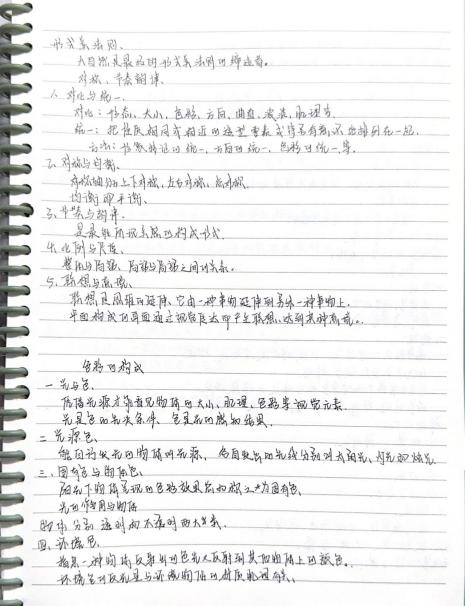 形式美法则、
大自然是最好的形式美法则的缔造者。
对称、节奏韵律、
1. 对比与统一、
对比：形态、大小、色彩、方向、曲直、肌理等
统一：把性质相同或相近的造型要素排列在一起、
方法：形象特征的统一、方向的统一、色彩的统一等、
2. 对称与均衡、
对称轴分上下对称、左右对称、
均衡即平衡、
3. 节奏与韵律、
是最能体现美感的构成形式
4. 比例与尺度、
整体与局部、局部与局部之间的关系。
5. 联想与
联想是思维的延伸、它由一种事物延伸到另外一种事物上、
平面构成的画面通过视觉传达而产生联想、达到某种
色彩的构成
一 光与色、
凭借光源才能看见物体的大小、肌理、色彩等视觉元素
光是色的先决条件、色是光的感知结果、
二 光源色、
能自行发光的物体叫光源、各自发出的光线分别叫太阳光、灯光
三、固有色与物体色、
阳光下物体呈现的色彩效果总和称之为固有色、
光的作用与物体
物体分别 透明的不透明的两大类、
四、环境色、
指某一种物体反射出的色光又反射到其他物体上的颜色。
环境色的反光量与环境物体的材质肌理有关、